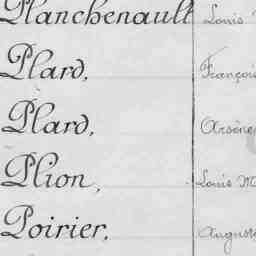 Planchenault Louis
Plard, François
Plard, Arsène
Plion, Louis M
Poirier, Auguste